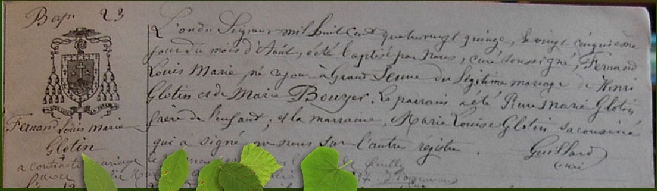 Bap. 23
Fernand Louis Marie
Glotin
a contracté mariage
L'an du Seigneur mil huit cent quatrevingt quinze, le vingt cinquième
jour du mois d'Août, a été baptisé par Nous, curé soussigné, Fernand
Louis Marie, né ce jour à Grand du légitime mariage de Henri
Glotin et de Marie Bouyer. Le parrain a été Pierre Marie Glotin
frère de l'enfant; et la marraine, Marie Louise Glotin sa cousine
qui a signé avec nous sur l'autre registre.
Guillard